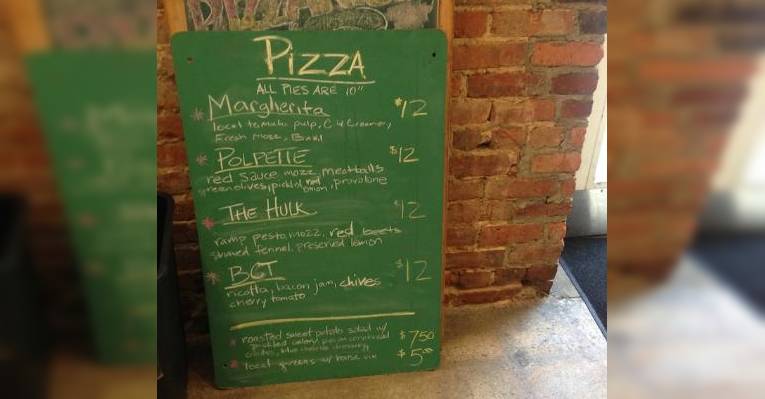 PIZZA
ALL PIES ARE 10"
* Margherita $12
local tomato pulp, C
Fresh Mozz, Basil
* POLPETTE $12
red sauce mozz, meatballs
green olives, pickled red onion, provolone
* THE HULK $12
ramp pesto, mozz, red beets
shaved fennel, preserved lemon
* BGT $12
ricotta, bacon jam, chives
cherry tomato
* roasted sweet potato salad w/ $7.50
pickled celery, pecan
blue cheese dressing
* local greens w/ house vin $5.00